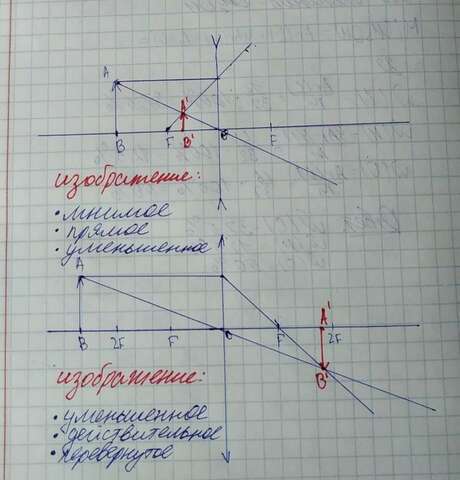 A
A'
B F B' O F
изображение:
• мнимое
• прямое
• уменьшенное
A
A'
B 2F F O F 2F
B'
изображение:
• уменьшенное
• действительное
• перевернутое